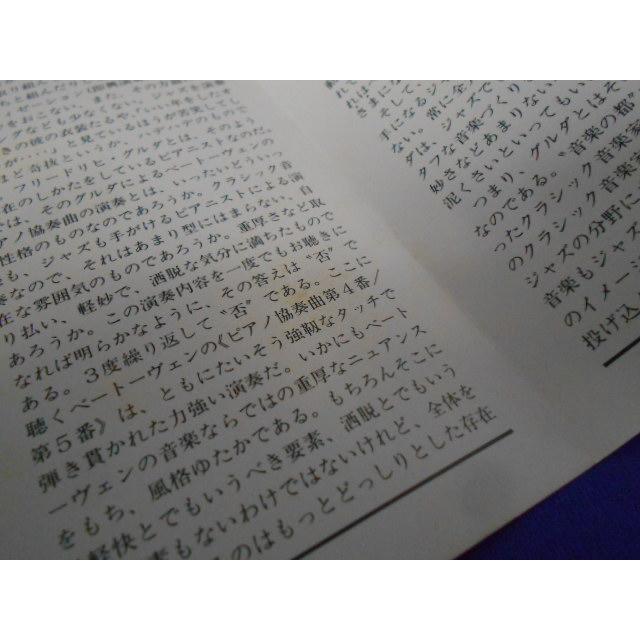 ゼーション（即興演
をおこない、また、その力
グなども少なくない。いい年をした
きの彼の衣装にもや、ハデハデのもので
が…」と見ているほうが苦笑してし
ど奇抜というか、
フリードリヒ・グルダとは、そのよう
在のしかたをしているピアニストなのだ。
は、そのグルダによるベートーヴェンの
アノ協奏曲の演奏とは、いったいどういっ
性格のものなのであろうか。クラシック音
も、ジャズも手がけるピアニストによる演
奏なので、それはあまり型にはまらない、自
在な雰囲気のものであろうか。重厚さなど取
り払い、軽妙で、洒脱な気分に満ちたもので
あろうか。この演奏内容を一度でもお聴きに
なれば明らかなように、その答えは〝否〟で
ある。3度繰り返して〝否〟である。ここに
聴くベートーヴェンの《ピアノ協奏曲第4番/
第5番》は、ともにたいそう強靱なタッチで
弾き貫かれた力強い演奏だ。いかにもベート
ーヴェンの音楽ならではの重厚なニュアンス
をもち、風格ゆたかである。もちろんそこに
軽快とでもいうべき要素、洒脱とでもいう
素もないわけではないけれど、全体を
のはもっとどっしりとした存在
れは
さまに
そして、
手になるジ
ない。常に全
ダは、ジャズで
タフな音楽づくり
妙さなどあまりない
泥くさいといってもい
つまり、グルダとはそ
なのである。〝音楽の都
ったクラシック音楽家
のクラシック音楽
ジャズの分野に
音楽もジャズ
のイメージ
投げ込